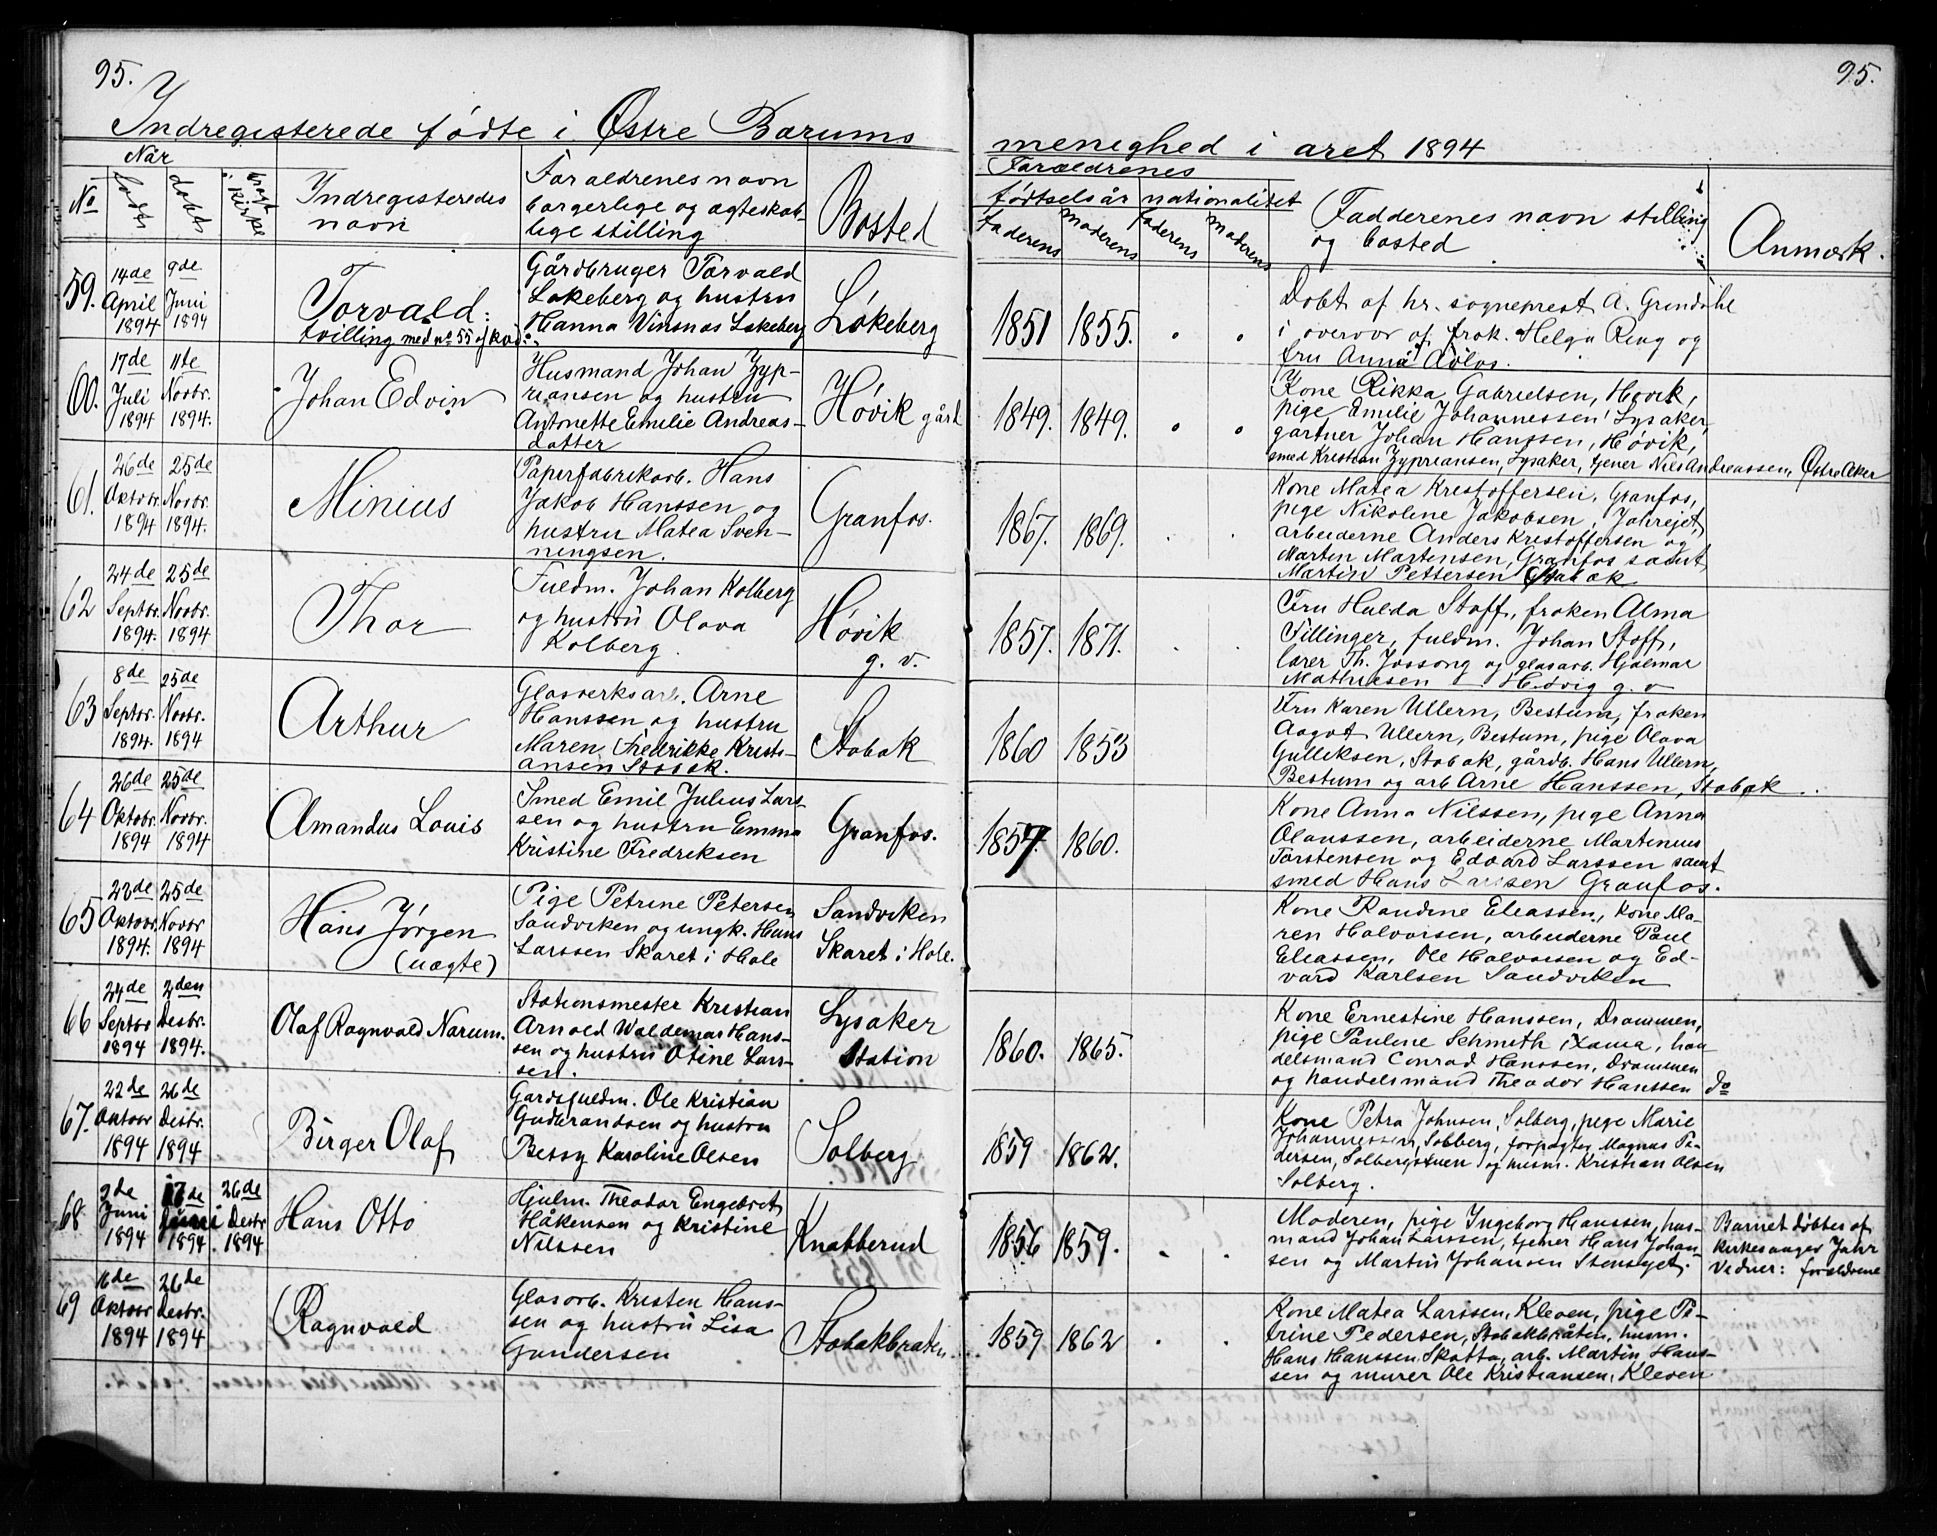 95.
95.
Indregisterede fødte i Østre Bærums
menighed i året 1894
Når
Forældrenes
No
født
døbt
kirke
Indregisteredes
navn
Forældrenes navn
borgerlige og ægteskab-
lige stilling
Bosted
fødselsår
nationalitet
faderens
moderens
faderens
moderens
Fadderenes navn stilling
og bosted
Anmærk.
59.
14de
April
1894
9de
Juni
1894
Torvald:
tvilling med no 55
Gårdbruger Torvald
Løkeberg og hustru
Hanna Vinsnæs Løkeberg
Løkeberg
1851
1855.
Døbt af hr. sogneprest A. Grøndahl
i overvær af frøk. Helga Ring og
fru Anna
60.
17de
Juli
1894
11te
Novbr.
1894.
Johan Edvin
Husmand Johan Zyp-
riansen og hustru
Antonette Emilie Andreas-
datter
Høvik gård
1849.
1849.
Kone Rikka Gabrielsen, Høvik,
pige Emilie Johannessen, Lysaker,
gartner Johan Hanssen, Høvik,
smed Kristian Zypriansen, Lysaker, tjener Nils Andreassen, Østre Aker
61.
26de
Oktobr.
1894
25de
Novbr.
1894.
Minius
Papirfabrikarb. Hans
Jakob Hanssen og
hustru Matea Sven-
ningsen.
Granfos.
1867.
1869.
Kone Matea Kristoffersen, Granfos,
pige Nikoline Jakobsen,
arbeiderne Anders Kristoffersen og
Martin Martensen, Granfos samt
Martin Pettersen Stabæk
62
24de
Septbr.
1894.
25de
Novbr.
1894
Thor
Fuldm. Johan Kolberg
og hustru Olava
Kolberg.
Høvik
g. v.
1857.
1871.
Fru Hulda Stoff, frøken Alma
Tillinger, fuldm. Johan Stoff,
lærer Th. Jossong og glasarb. Hjalmar
Mathiesen Høvig g. v
63
8de
Septbr.
1894.
25de
Novbr.
1894
Arthur
Glasverksarb. Arne
Hanssen og hustru
Maren Fredrikke Kristi-
ansen Stabæk.
Stabæk
1860
1853
Fru Karen Ullern, Bestum, frøken
Aagot Ullern, Bestum, pige Olava
Gulliksen, Stabæk, gårdb. Hans Ullern,
Bestum og arb Arne Hanssen, Stabæk
64
26de
Oktobr.
1894
25de
Novbr.
1894
Amandus Louis
Smed Emil Julius Lars-
sen og hustru Emma
Kristine Fredriksen
Granfos.
1857.
1860.
Kone Anna Nilssen, pige Anna
Olaussen, arbeiderne Martinius
Torstensen og Edvard Larssen samt
smed Hans Larssen Granfos.
65
23de
Oktobr.
1894.
25de
Novbr
1894
Hans Jørgen
(uægte)
Pige Petrine Petersen
Sandviken og ungk. Hans
Larssen Skaret i Hole
Sandviken
Skaret i Hole.
Kone Randine Eliassen, kone Ma-
ren Halvorsen, arbeiderne Paul
Eliassen, Ole Halvorsen og Ed-
vard Karlsen Sandviken
66
24de
Septbr
1894
2den
Desbr.
1894.
Olaf Ragnvald Narum.
Stationsmester Kristian
Arnold Waldemar Hans-
sen og hustru Otine Lars-
sen.
Lysaker
Station
1860.
1865.
Kone Ernestine Hanssen, Drammen,
pige Pauline Schmeth, han-
delsmand Conrad Hanssen, Drammen
og handelsmand Theodor Hanssen do
67.
22de
Oktobr
1894
26de
Desbr.
1894
Birger Olaf
Gårdsfuldm. Ole Kristian
Gudbrandsen og hustru
Bessy Karoline Olsen
Solberg.
1859
1862.
Kone Petra Johnsen, Solberg, pige Marie
Johannessen, Solberg, forpagter Magnus Pe-
dersen, Solbergstuen og husm. Kristian Olsen
Solberg.
68
9de
Juni
1894
17de
Juni
1894
26de
Desbr
1894
Hans Otto
Hjulm. Theodor Engebret
Håkensen og Kristine
Nilssen
Knabberud
1856
1859.
Moderen, pige Ingeborg Hanssen, hus-
mand Johan Larssen, tjener Hans Johan-
sen og Martin Johansen Stensejet.
Barnet døbtes af
kirkesanger Jahr
Vidner: forældrene
69
16de
Oktobr
1894
26de
Desbr.
1894
Ragnvald
Glasarb. Kristen Hans-
sen og hustru Lisa
Gundersen
Stabækbråten.
1859
1862
Kone Matea Larssen, Kleven, pige Pe-
trine Pedersen, Stabækbråten, husm.
Hans Hanssen Skøtta, arb. Martin Hans-
sen og murer Ole Kristiansen, Kleven